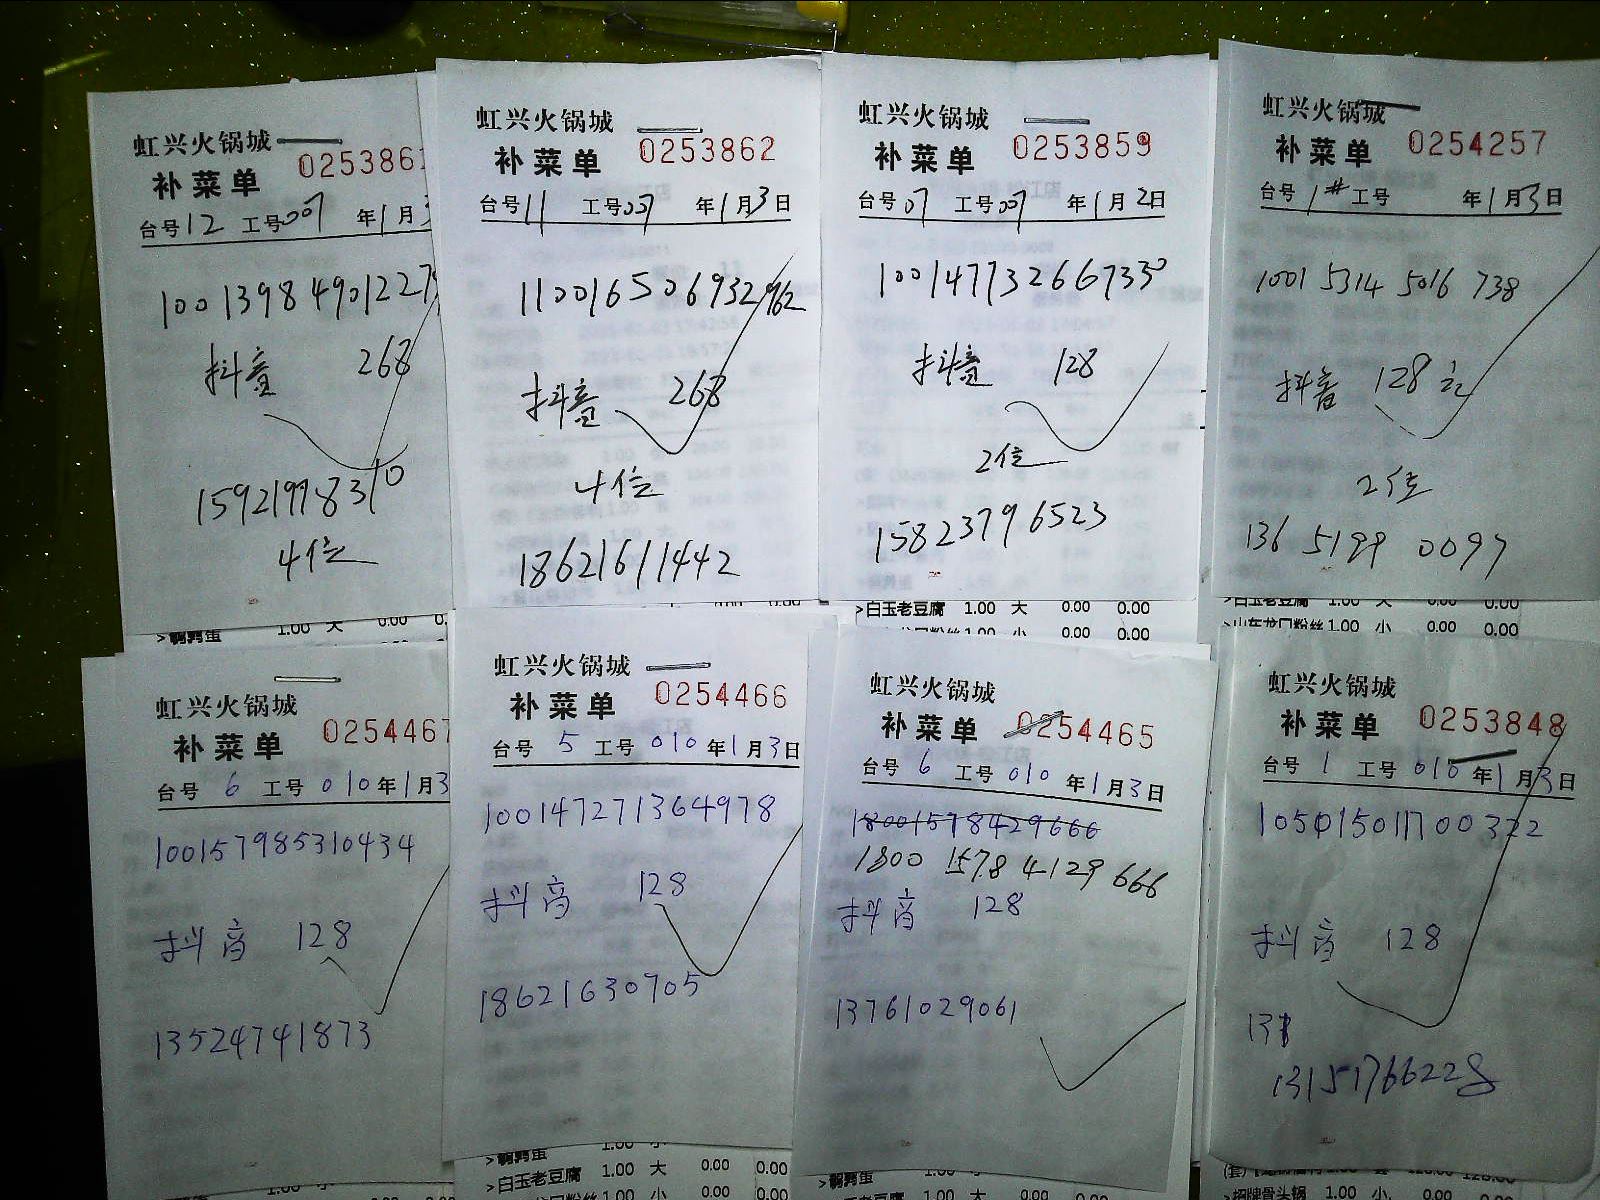 虹兴火锅城
0253861
补菜单
台号12 工号007 年1月3
100139849012279
抖音 268
15921998310
4位
虹兴火锅城
0253862
补菜单
台号11 工号007 年1月3日
110016506932962
抖音 268
4位
18621611442
虹兴火锅城
0253859
补菜单
台号07 工号007 年1月2日
100147732667330
抖音 128
2位
15823796523
虹兴火锅城
0254257
补菜单
台号1# 工号 年1月3日
1001 5314 5016 738
抖音 128元
2位
136 5199 0097
>鹌鹑蛋 1.00 大 0.00 0.
0.00 0.00
>白玉老豆腐 1.00 大 0.00 0.00
1.00 小 0.00 0.00
>白玉老豆腐 1.00 大 0.00 0.00
>山东龙口粉丝 1.00 小 0.00 0.00
虹兴火锅城
0254467
补菜单
台号 6 工号 010 年1月3
100157985310434
抖音 128
13524741873
虹兴火锅城
0254466
补菜单
台号 5 工号 010 年1月3日
100147271364978
抖音 128
18621630705
虹兴火锅城
0254465
补菜单
台号 6 工号 010 年1月3日
1800 1578 4129 666
抖音 128
13761029061
虹兴火锅城
0253848
补菜单
台号 1 工号 010 年1月3日
105015011700322
抖音 128
131
13151766228
>鹌鹑蛋 1.00 小
>白玉老豆腐 1.00 大 0.00 0.00
1.00 小 0.00 0.00
>鹌鹑蛋 1.00 小 0.00 0.00
1.00 大 0.00 0.00
>招牌骨头锅 1.00 小 0.00 0.00